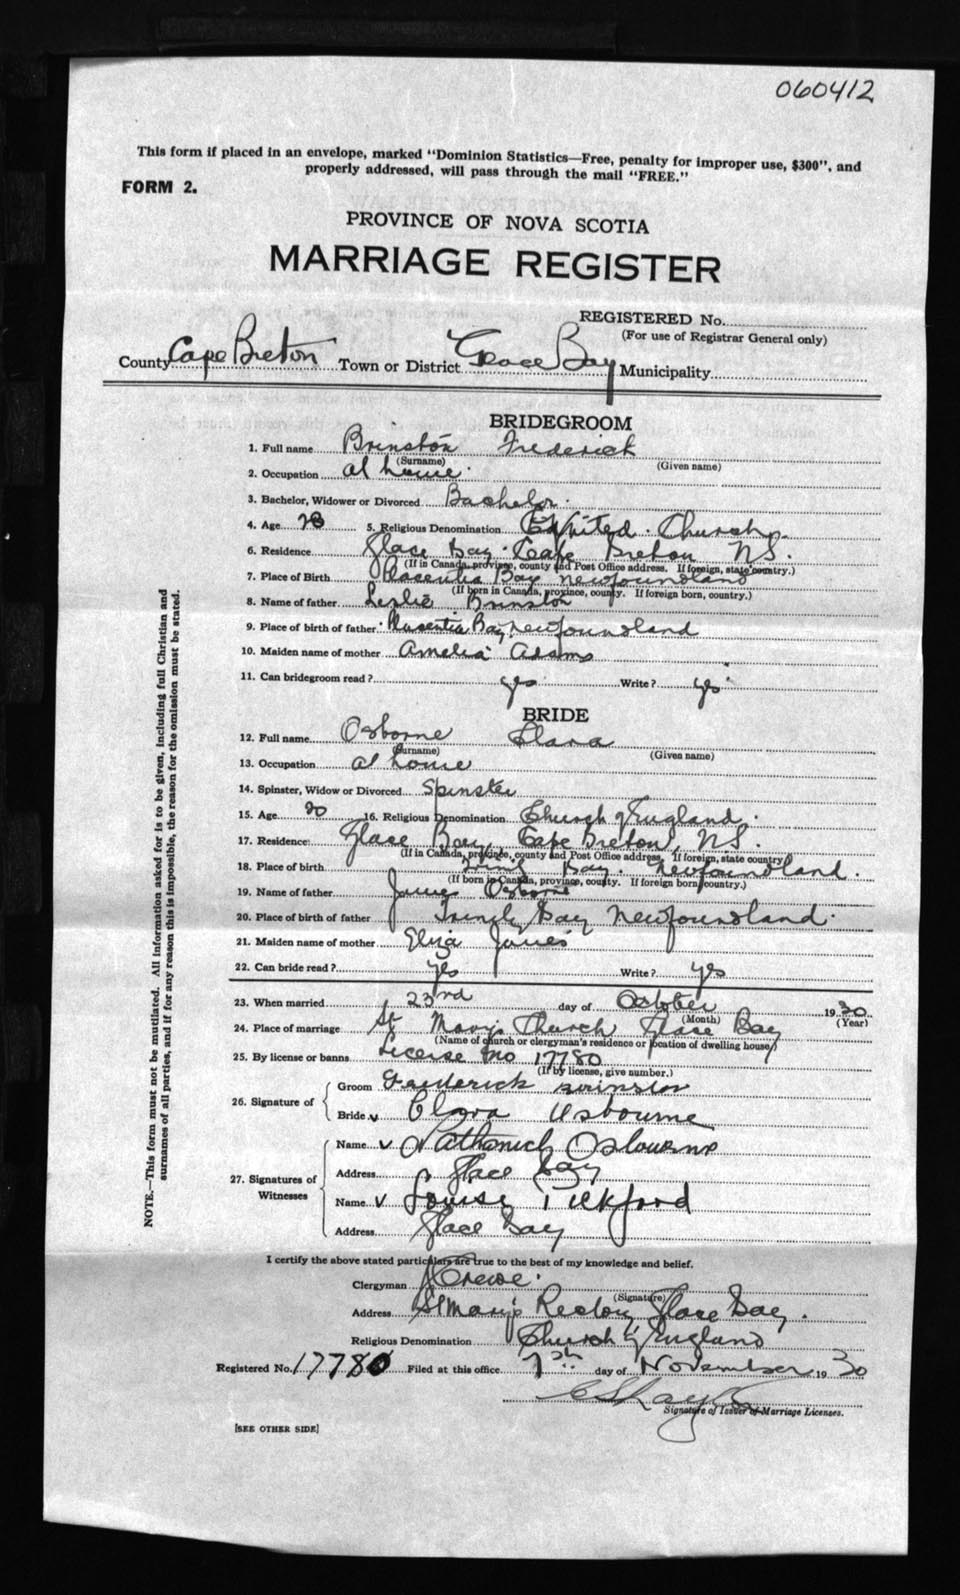 060412
This form if placed in an envelope, marked "Dominion Statistics—Free, penalty for improper use, $300", and
properly addressed, will pass through the mail "FREE."
FORM 2.
PROVINCE OF NOVA SCOTIA
MARRIAGE REGISTER
REGISTERED No.
(For use of Registrar General only)
County Cape Breton Town or District Glace Bay Municipality
BRIDEGROOM
1. Full name Brinston Frederick
(Surname) (Given name)
2. Occupation at home
3. Bachelor, Widower or Divorced Bachelor
4. Age 5. Religious Denomination United Church
6. Residence Glace Bay Cape Breton N.S.
(If in Canada, province, county and Post Office address. If foreign, state country.)
7. Place of Birth Placentia Bay Newfoundland
(If born in Canada, province, county. If foreign born, country.)
8. Name of father Leslie Brinston
9. Place of birth of father Placentia Bay, Newfoundland
10. Maiden name of mother Amelia Adams
11. Can bridegroom read? yes Write? yes
BRIDE
12. Full name Osborne Clara
(Surname) (Given name)
13. Occupation at home
14. Spinster, Widow or Divorced Spinster
15. Age 20 16. Religious Denomination Church of England
17. Residence Glace Bay, Cape Breton, N.S.
(If in Canada, province, county and Post Office address. If foreign, state country)
18. Place of birth Bay. Newfoundland.
(If born in Canada, province, county. If foreign born, country.)
19. Name of father James Osborne
20. Place of birth of father Trinity Bay Newfoundland.
21. Maiden name of mother Eliza James
22. Can bride read? yes Write? yes
23. When married 23rd day of October 1930
(Month) (Year)
24. Place of marriage St Mary's Church Glace Bay
(Name of church or clergyman's residence or location of dwelling house)
25. By license or banns License No 17780
(If by license, give number.)
26. Signature of
Groom Frederick Brinston
Bride v Clara Osbourne
27. Signatures of
Witnesses
Name v Nathaniel Osbourne
Address Glace Bay
Name v Louise Pickford
Address Glace Bay
I certify the above stated particulars are true to the best of my knowledge and belief.
Clergyman Crewe.
(Signature)
Address St Mary's Rectory, Glace Bay.
Religious Denomination Church of England
Registered No. 17780 Filed at this office 7th day of November 1930
Signature of Issuer of Marriage Licenses.
[SEE OTHER SIDE]
NOTE.—This form must not be mutilated. All information asked for is to be given, including full Christian and
surnames of all parties, and if for any reason this is impossible, the reason for the omission must be stated.